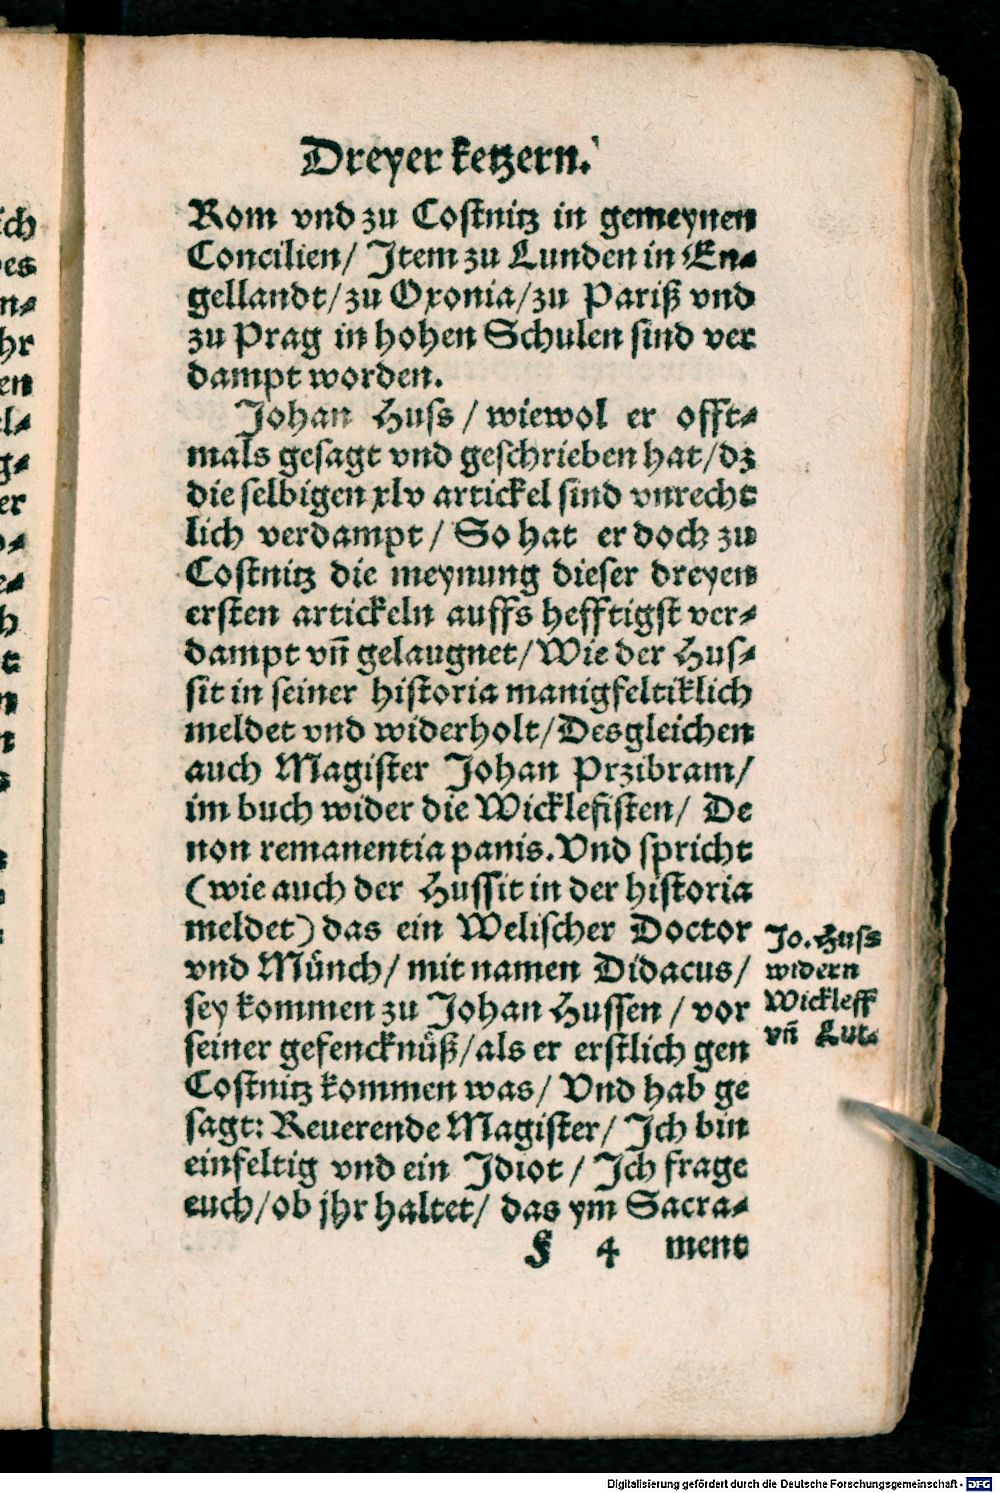 Dreyer ketzern.
Rom vnd zu Costnitz in gemeynen
Concilien/ Item zu Lunden in En-
gellandt/zu Oxonia/zu Pariß vnd
zu Prag in hohen Schulen sind ver
dampt worden.
Johan Huss / wiewol er offt-
mals gesagt vnd geschrieben hat/dz
die selbigen xlv artickel sind vnrecht
lich verdampt/ So hat er doch zu
Costnitz die meynung dieser dreyen
ersten artickeln auffs hefftigst ver-
dampt vn̄ gelaugnet/Wie der Hus-
sit in seiner historia manigfeltiklich
meldet vnd widerholt/Desgleichen
auch Magister Johan Przibram/
im buch wider die Wicklefisten/ De
non remanentia panis. Vnd spricht
(wie auch der Hussit in der historia
meldet) das ein Welischer Doctor
vnd Můnch/ mit namen Didacus/
sey kommen zu Johan Hussen / vor
seiner gefencknůß/als er erstlich gen
Costnitz kommen was/ Vnd hab ge
sagt: Reuerende Magister/ Ich bin
einfeltig vnd ein Idiot / Ich frage
euch/ob jhr haltet/ das ym Sacra-
F 4 ment
Jo. Huss
widern
Wickleff
vn̄ Lut.
ich
es
n-
hr
en
el-
g-
er
Digitalisierung gefördert durch die Deutsche Forschungsgemeinschaft - DFG